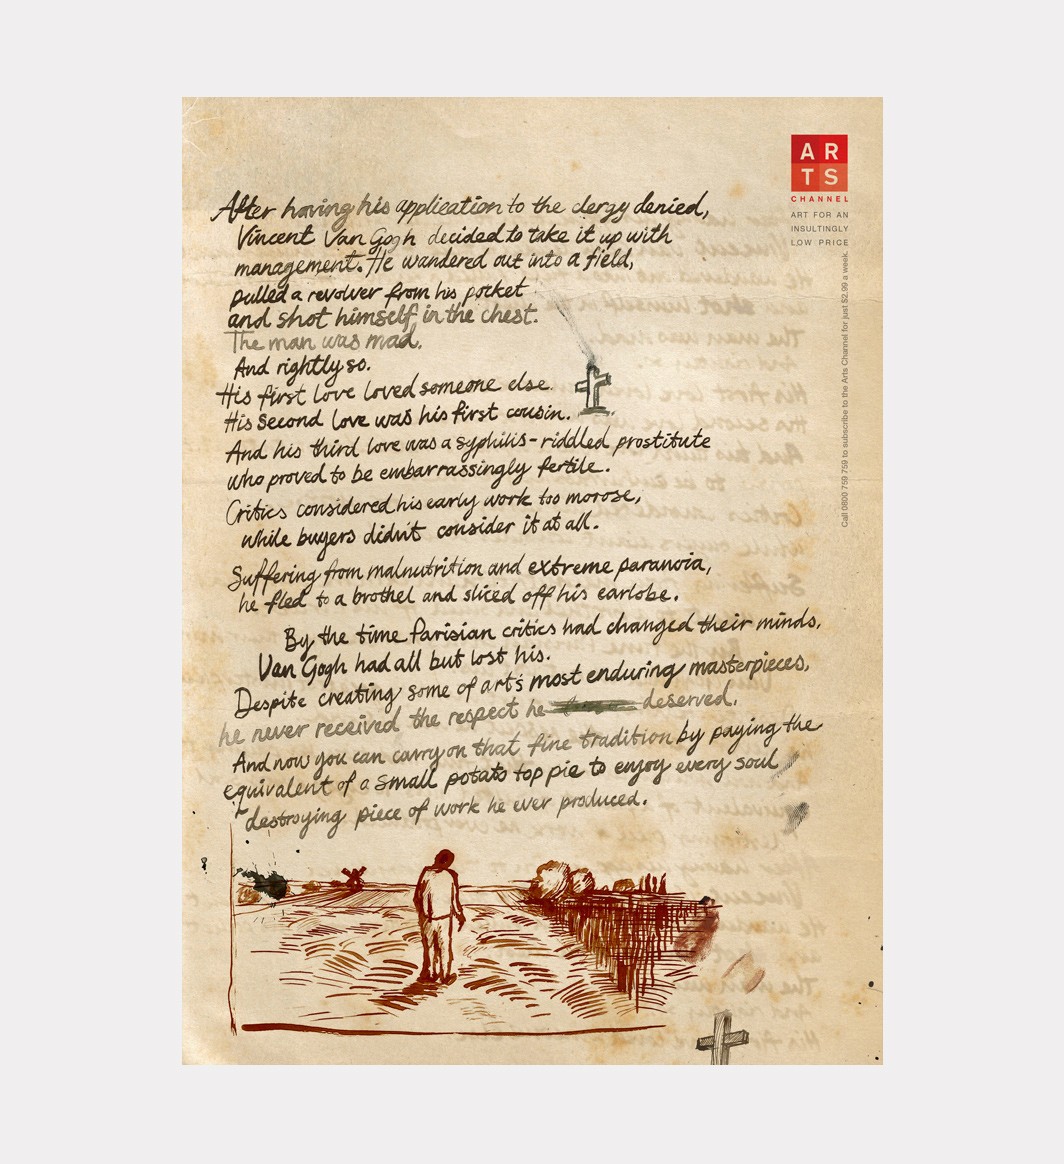 After having his application to the clergy denied,
Vincent Van Gogh decided to take it up with
management. He wandered out into a field,
pulled a revolver from his pocket
and shot himself in the chest.
The man was mad.
And rightly so.
His first love loved someone else.
His second love was his first cousin.
And his third love was a syphilis-riddled prostitute
who proved to be embarrassingly fertile.
Critics considered his early work too morose,
while buyers didn't consider it at all.
Suffering from malnutrition and extreme paranoia,
he fled to a brothel and sliced off his earlobe.
By the time Parisian critics had changed their minds,
Van Gogh had all but lost his.
Despite creating some of art's most enduring masterpieces,
he never received the respect he deserved.
And now you can carry on that fine tradition by paying the
equivalent of a small potato top pie to enjoy every soul
destroying piece of work he ever produced.
AR
TS
CHANNEL
ART FOR AN
INSULTINGLY
LOW PRICE
Call 0800 759 759 to subscribe to the Arts Channel for just $2.99 a week.